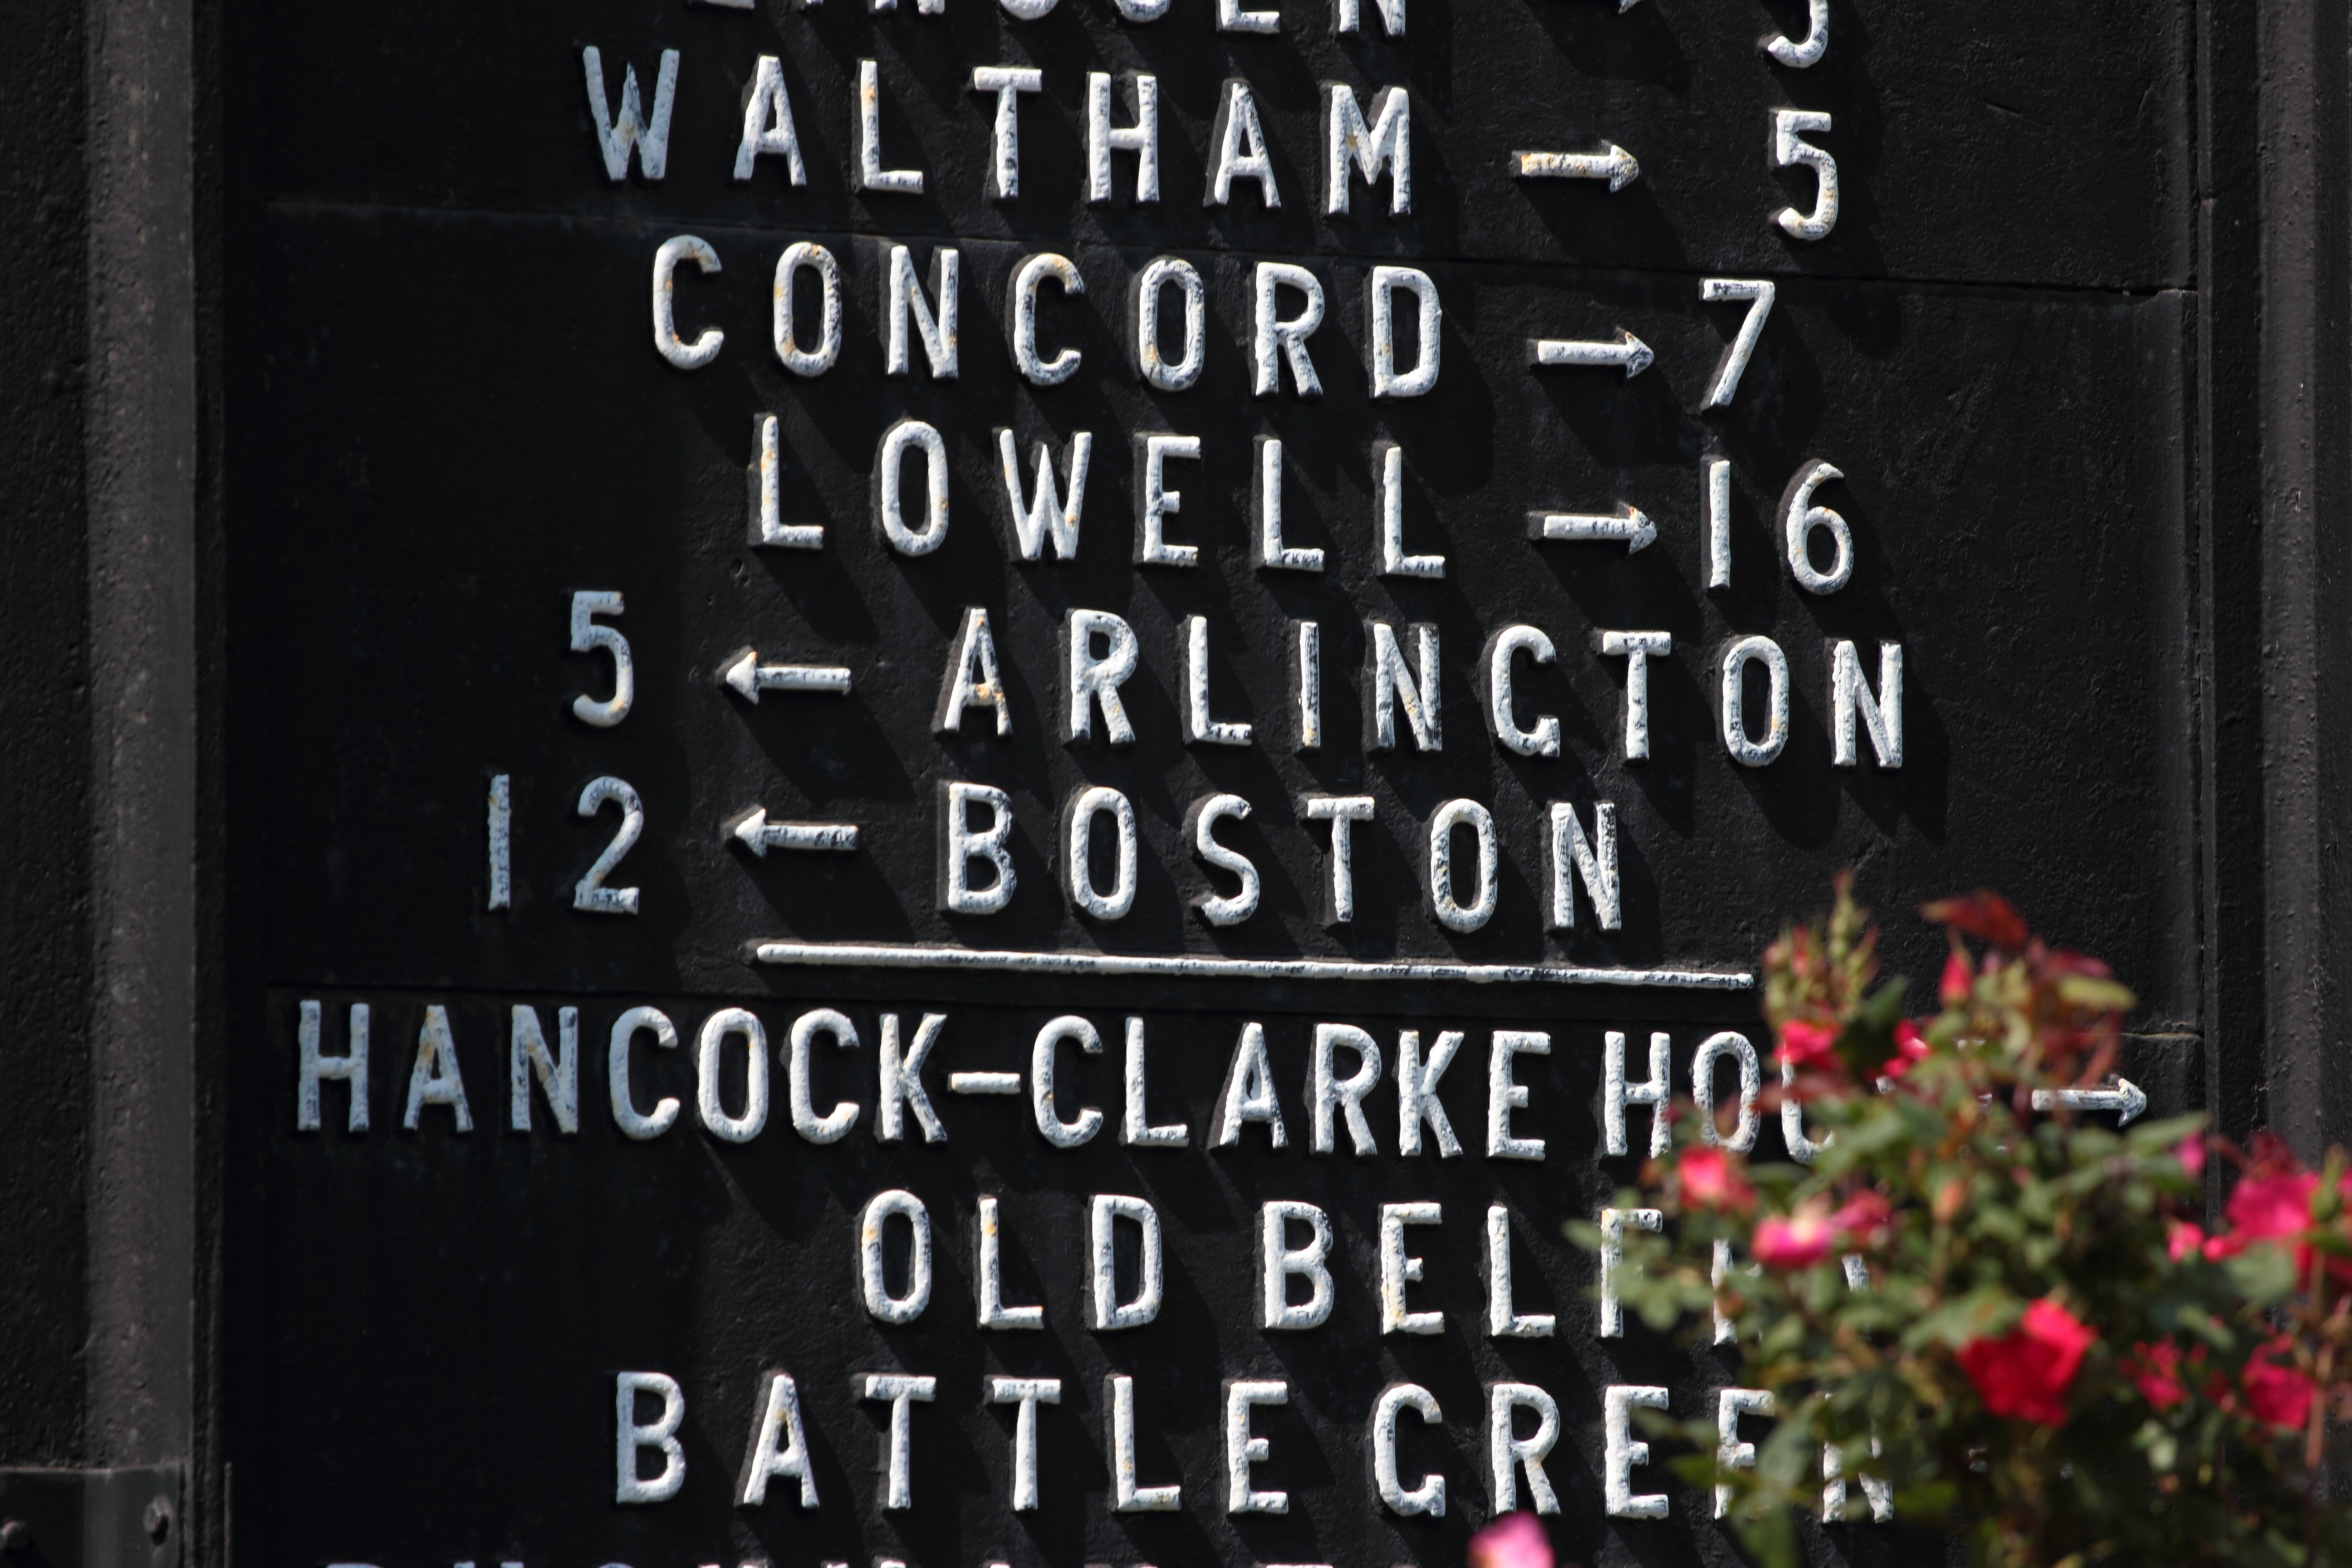 WALTHAM → 5
CONCORD → 7
LOWELL → 16
5 ← ARLINGTON
12 ← BOSTON
HANCOCK-CLARKE →
OLD
BATTLE GREEN